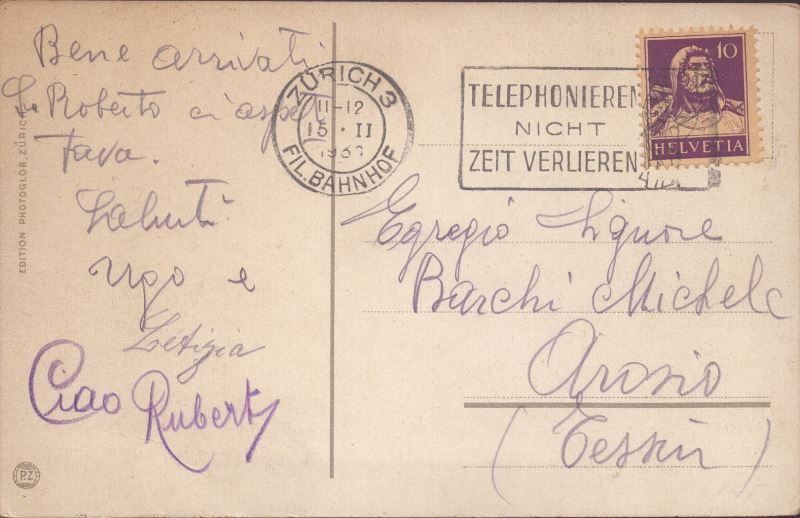 Bene arrivati
Roberto ci aspet
tava.
Saluti
Ugo e
Letizia
Ciao Ruberty
EDITION PHOTOGLOB, ZÜRICH
PZ
ZÜRICH 3
11-12
15·II
FIL. BAHNHOF
TELEPHONIEREN
NICHT
ZEIT VERLIEREN
10
HELVETIA
Egregio Signore
Barchi Michele
Arosio
(Tessin)